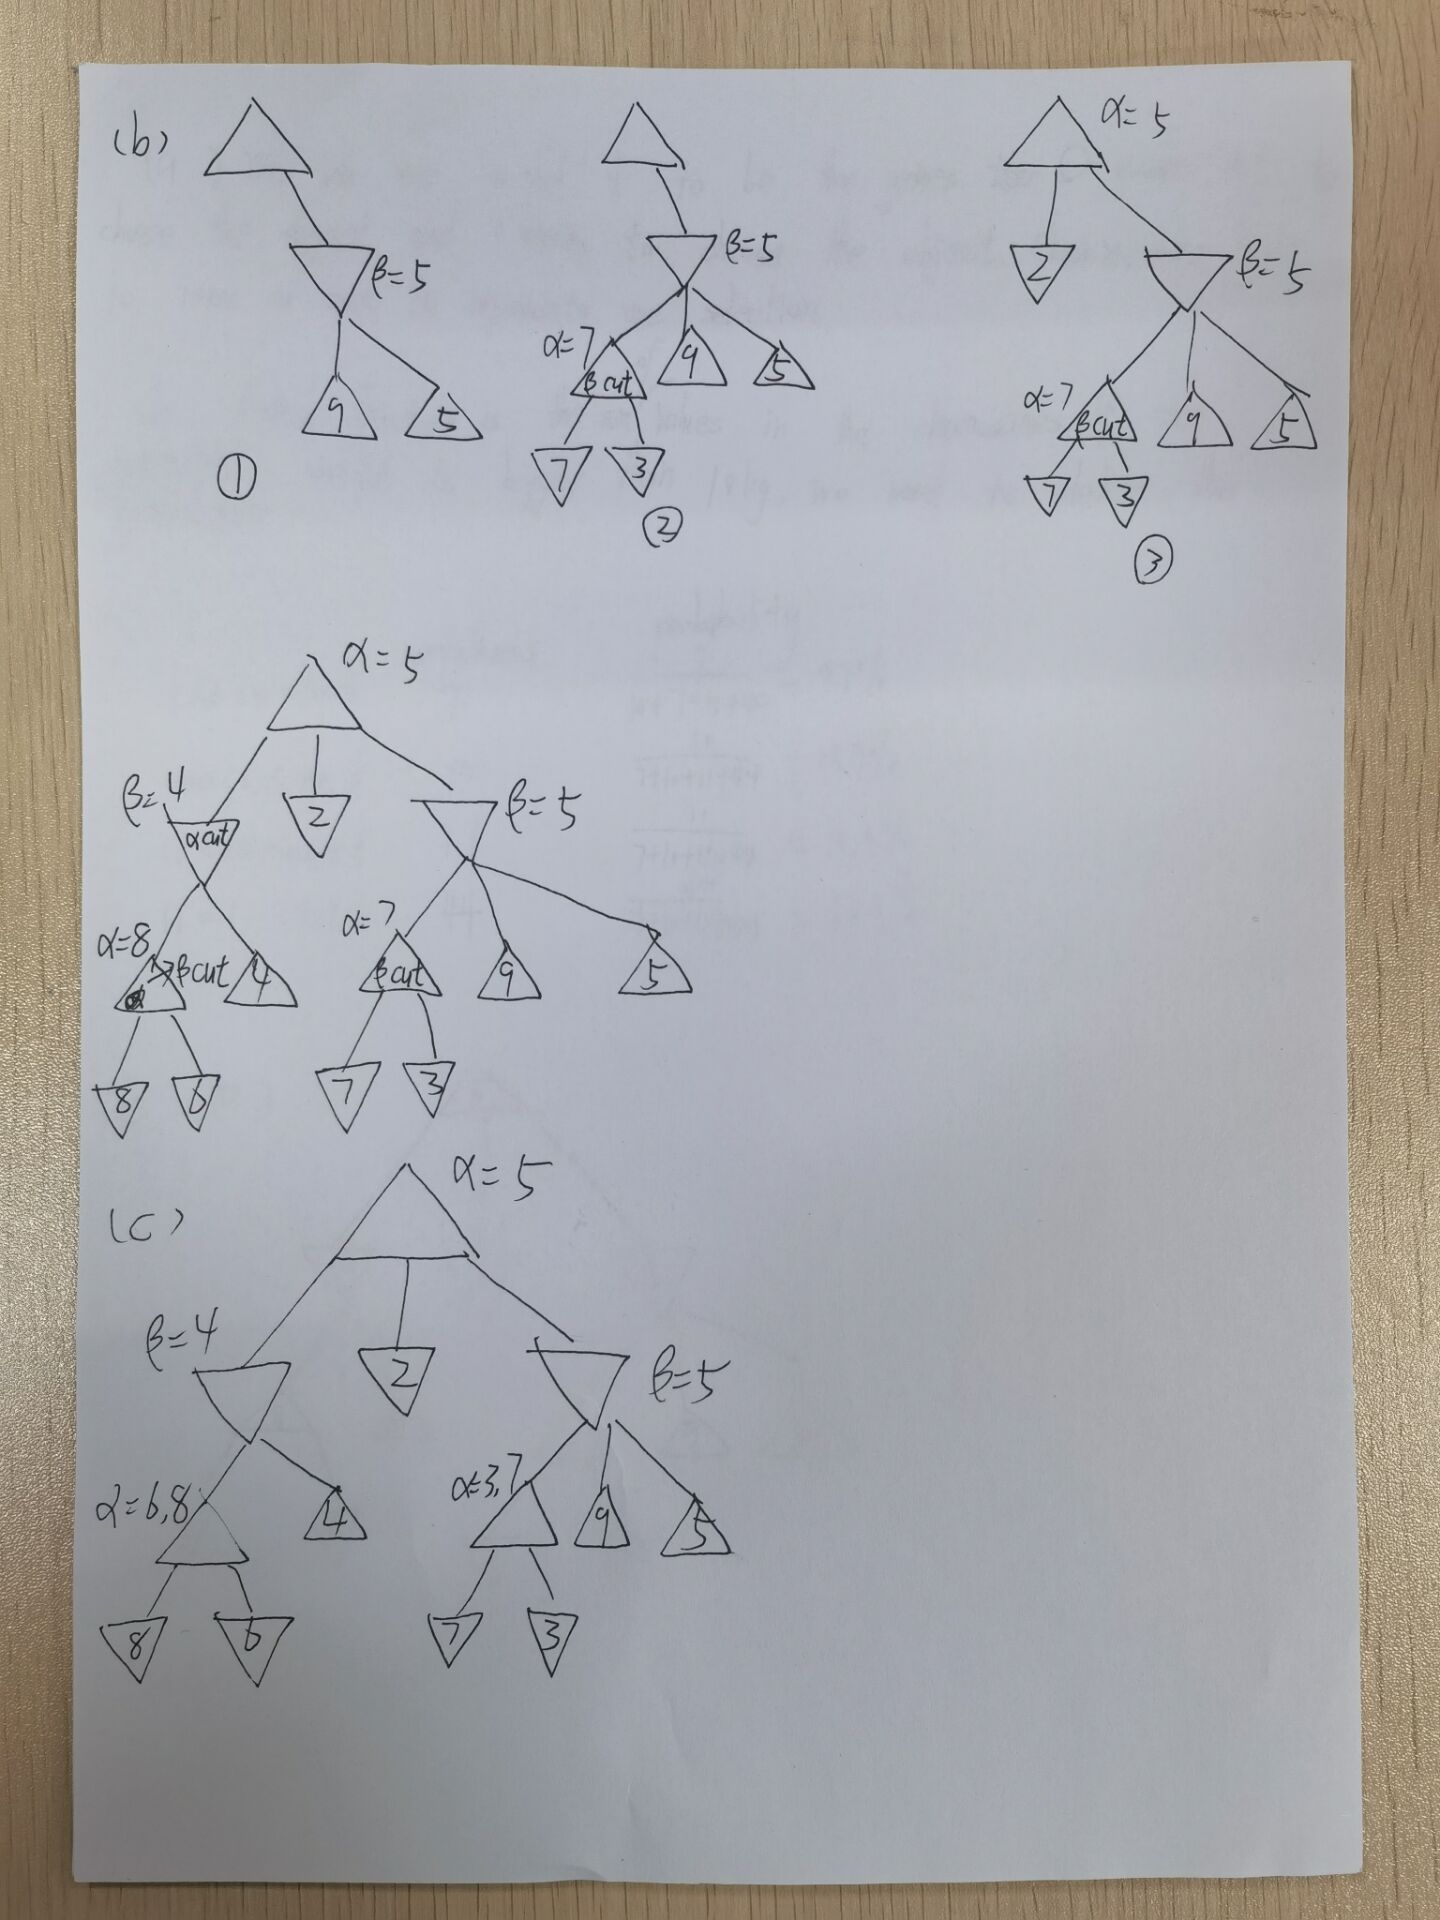 (b)
β=5
9
5
①
β=5
α=7
β cut
9
5
7
3
②
α=5
2
β=5
α=7
β cut
9
5
7
3
③
α=5
β=4
α cut
2
β=5
α=8
β cut
4
α=7
β cut
9
5
8
6
7
3
(c)
α=5
β=4
2
β=5
α=6,8
4
α=3,7
9
5
8
6
7
3